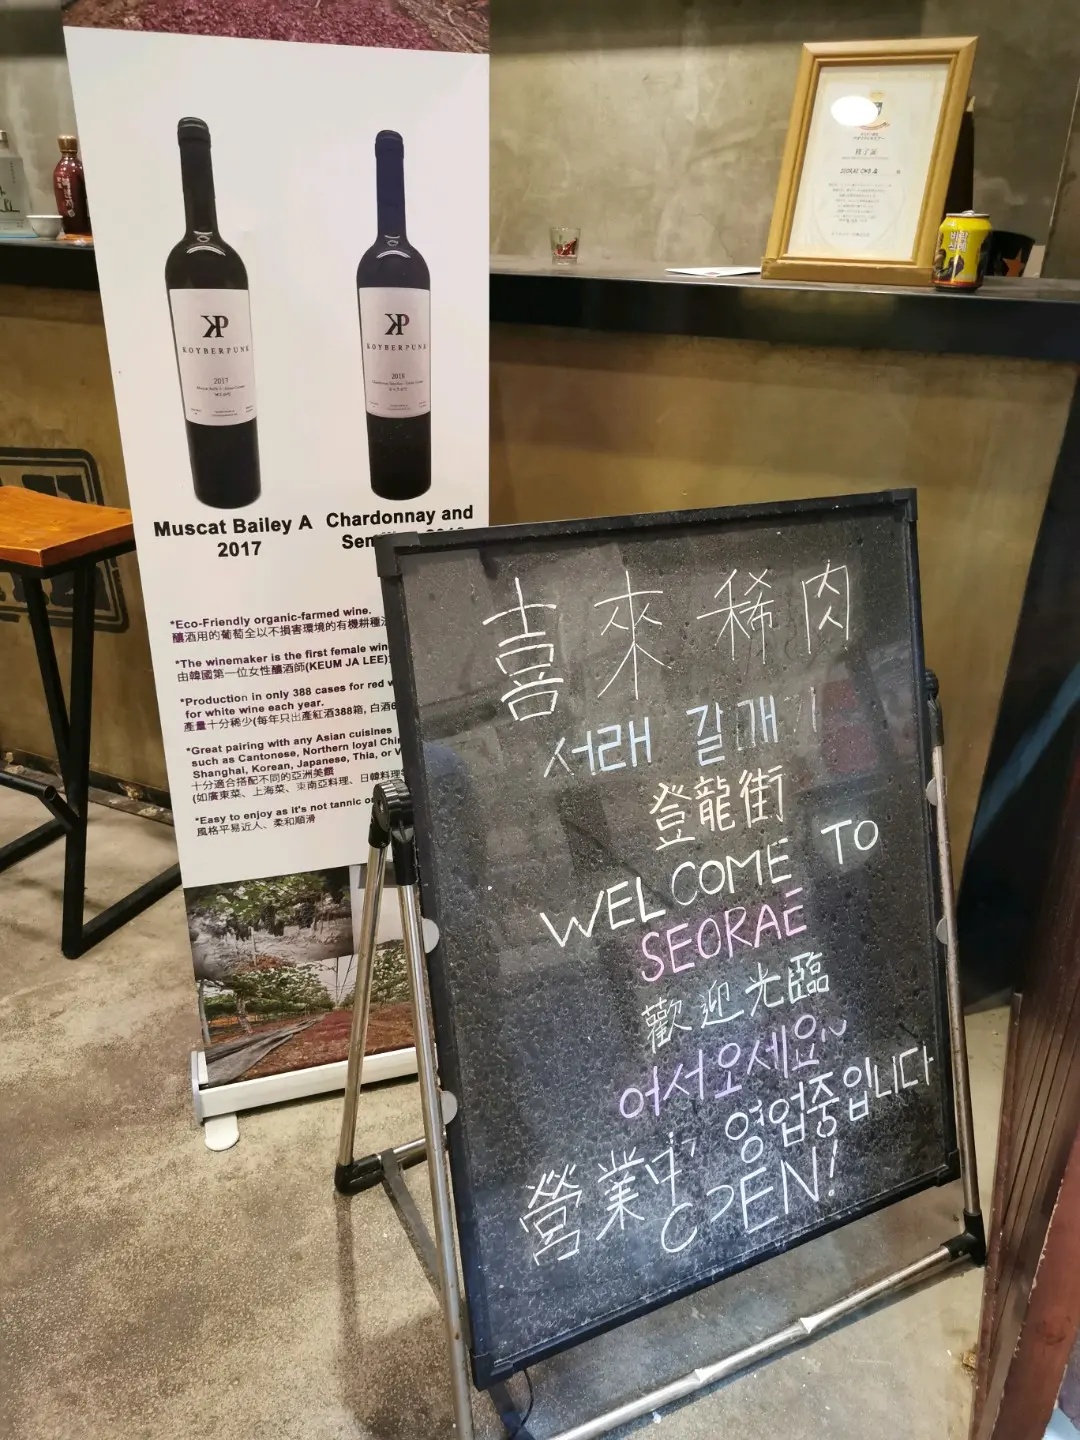 KP
KOYBERPUNK
2017
KP
KOYBERPUNK
2016
Muscat Bailey A
2017
Chardonnay and
*Eco-Friendly organic-farmed wine.
釀酒用的葡萄全以不損害環境的有機耕種
*The winemaker is the first female
由韓國第一位女性釀酒師(KEUM JA LEE)
*Production in only 388 cases for red
for white wine each year.
產量十分稀少(每年只出產紅酒388箱, 白酒
*Great pairing with any Asian cuisines
such as Cantonese, Northern loyal
Shanghai, Korean, Japanese, Thia, or
十分適合搭配不同的亞洲美饌
(如廣東菜、上海菜、東南亞料理、日韓料理
*Easy to enjoy as it's not tannic
風格平易近人、柔和順滑
SEORAE
喜來稀肉
서래 갈매기
登龍街
WELCOME TO
SEORAE
歡迎光臨
어서오세요~
영업중입니다
營業中,
OPEN!